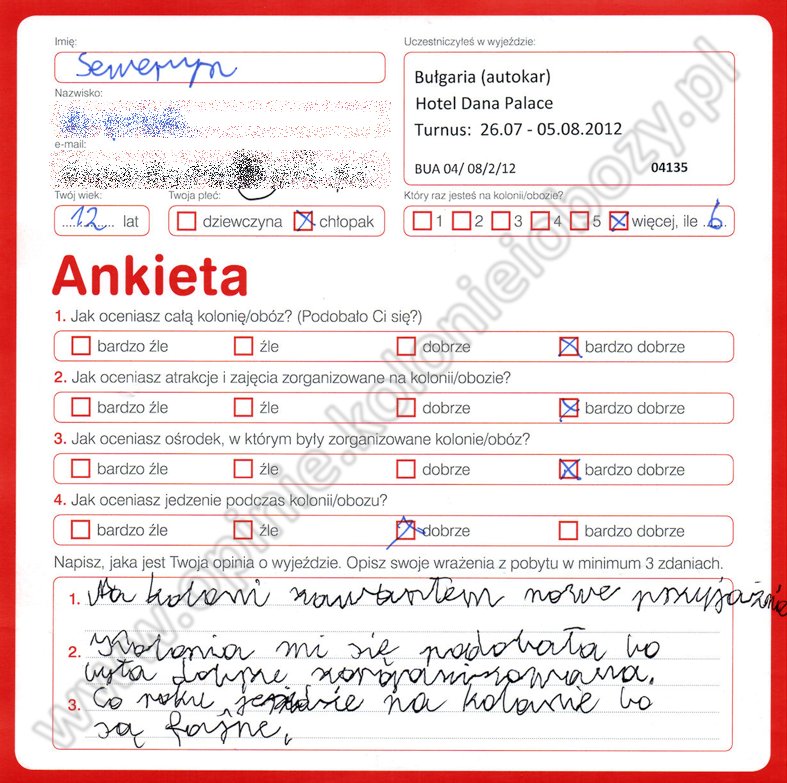 Imię:
Uczestniczyłeś w wyjeździe:
Seweryn
Bułgaria (autokar)
Hotel Dana Palace
Turnus: 26.07 - 05.08.2012
BUA 04/ 08/2/12 04135
Nazwisko:
e-mail:
Twój wiek:
Twoja płeć:
Który raz jesteś na kolonii/obozie?
12 lat
dziewczyna chłopak
1 2 3 4 5 więcej, ile 6
Ankieta
1. Jak oceniasz całą kolonię/obóz? (Podobało Ci się?)
bardzo źle źle dobrze bardzo dobrze
2. Jak oceniasz atrakcje i zajęcia zorganizowane na kolonii/obozie?
bardzo źle źle dobrze bardzo dobrze
3. Jak oceniasz ośrodek, w którym były zorganizowane kolonie/obóz?
bardzo źle źle dobrze bardzo dobrze
4. Jak oceniasz jedzenie podczas kolonii/obozu?
bardzo źle źle dobrze bardzo dobrze
Napisz, jaka jest Twoja opinia o wyjeździe. Opisz swoje wrażenia z pobytu w minimum 3 zdaniach.
1. Na koloni zawarłem nowe przyjaźnie
2. Kolonia mi się podobała bo
była dobrze zorganizowana.
3. Co roku jeżdże na kolonie bo
są fajne.
www.opinie.kolonieiobozy.pl